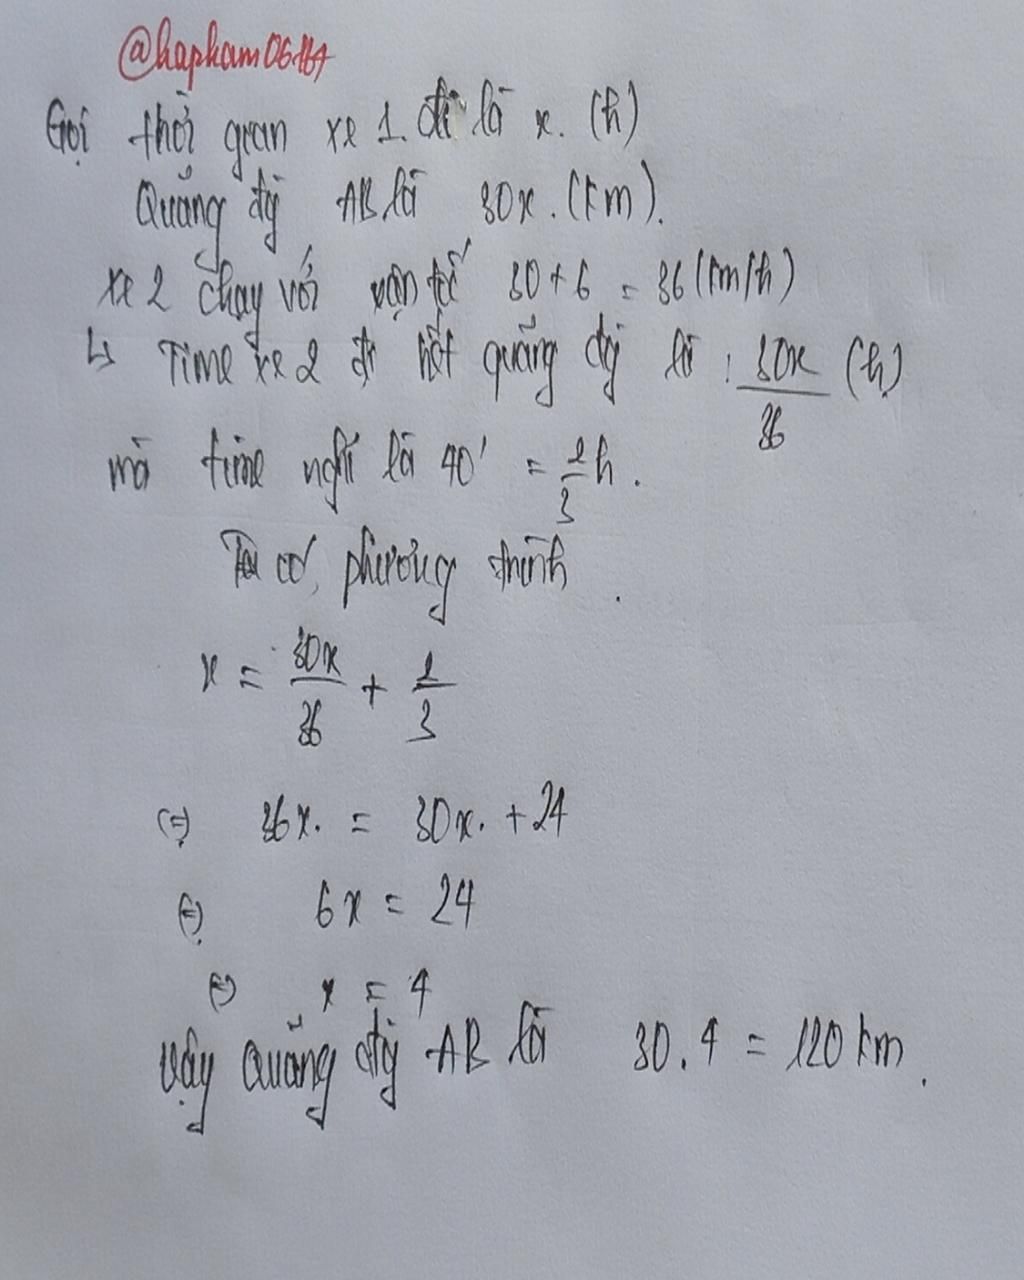 @hapham06187
Gọi thời gian xe 1 đi là x. (h)
Quãng đg AB là 30x. (km).
xe 2 chạy với vận tốc 30 + 6 = 36 (km/h)
↳ Time xe 2 đi hết quãng đg là : 30x/36 (h)
mà time nghỉ là 40' = 2/3 h.
Ta có phương trình
x = 30x/36 + 2/3
(=) 36x. = 30x. + 24
(=) 6x = 24
(=) x = 4
Vậy Quãng đg AB là 30.4 = 120 km.